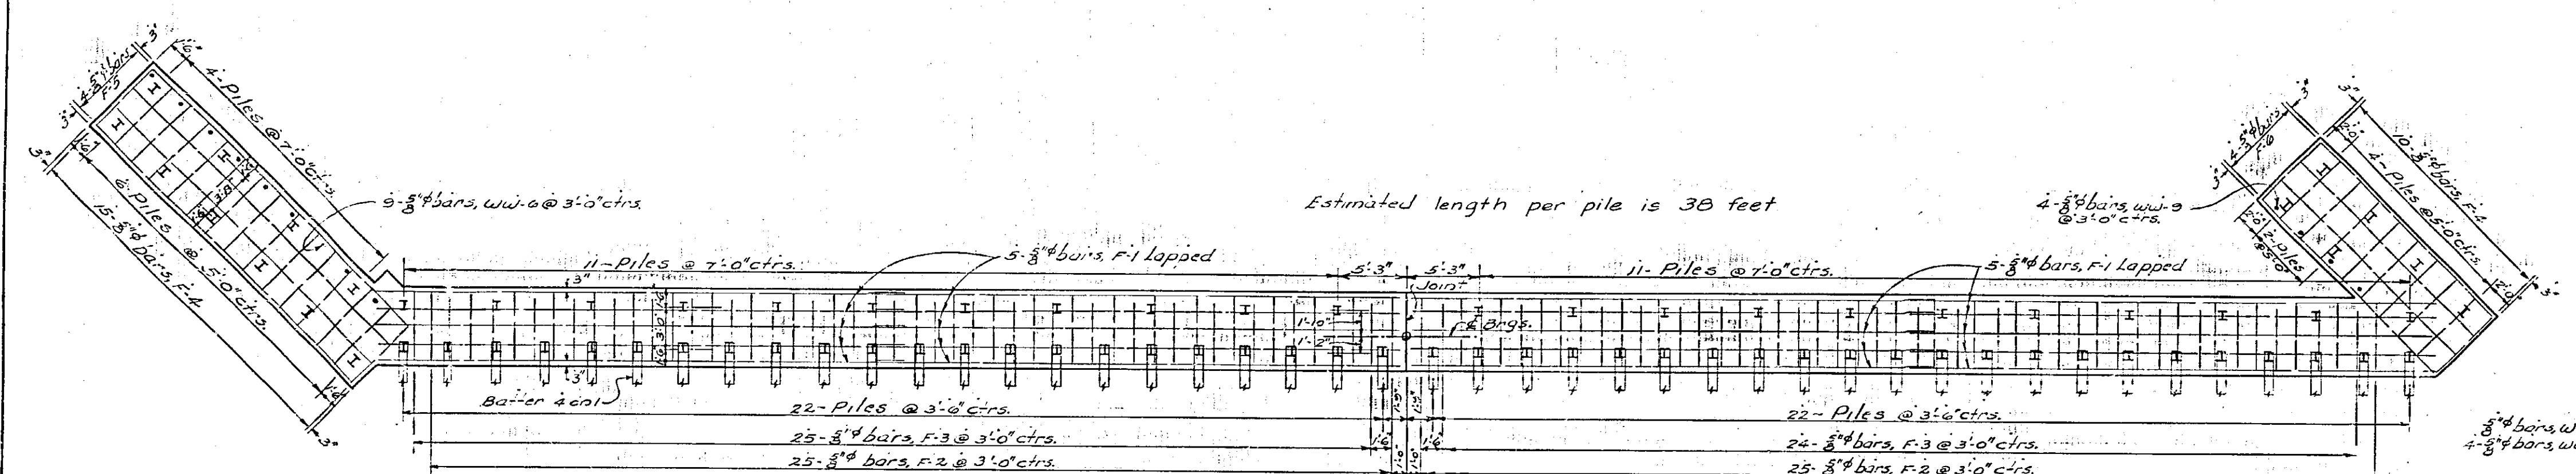 3"
1'-6"
4-⅝"φ bars
F-5
4-Piles @ 7'-0" ctrs.
3"
3"
1'-6"
6-Piles @ 5'-0" ctrs.
15-⅝"φ bars, F-4
1'-6"
3"
9-⅝"φ bars, WW-6 @ 3'-0" ctrs.
Estimated length per pile is 38 feet
3"
3"
4-⅝"φ bars
F-6
3"
2'-0"
10-⅝"φ bars, F-4
4-Piles @ 5'-0" ctrs.
4-⅝"φ bars, WW-9
@ 3'-0" ctrs.
2'-0"
2-Piles
@ 5'-0"
2'-0"
3"
11-Piles @ 7'-0" ctrs.
5-⅝"φ bars, F-1 Lapped
5'-3"
5'-3"
11-Piles @ 7'-0" ctrs.
5-⅝"φ bars, F-1 Lapped
Joint
3"
3'-0"
1'-10"
1'-2"
℄ Brgs.
3"
Batter 4 on 1
22-Piles @ 3'-6" ctrs.
1'-9"
1'-9"
22-Piles @ 3'-6" ctrs.
25-⅝"φ bars, F-3 @ 3'-0" ctrs.
1'-6"
1'-6"
24-⅝"φ bars, F-3 @ 3'-0" ctrs.
25-⅝"φ bars, F-2 @ 3'-0" ctrs.
1'-0"
1'-0"
25-⅝"φ bars, F-2 @ 3'-0" ctrs.
⅝"φ bars, W
4-⅝"φ bars, WW